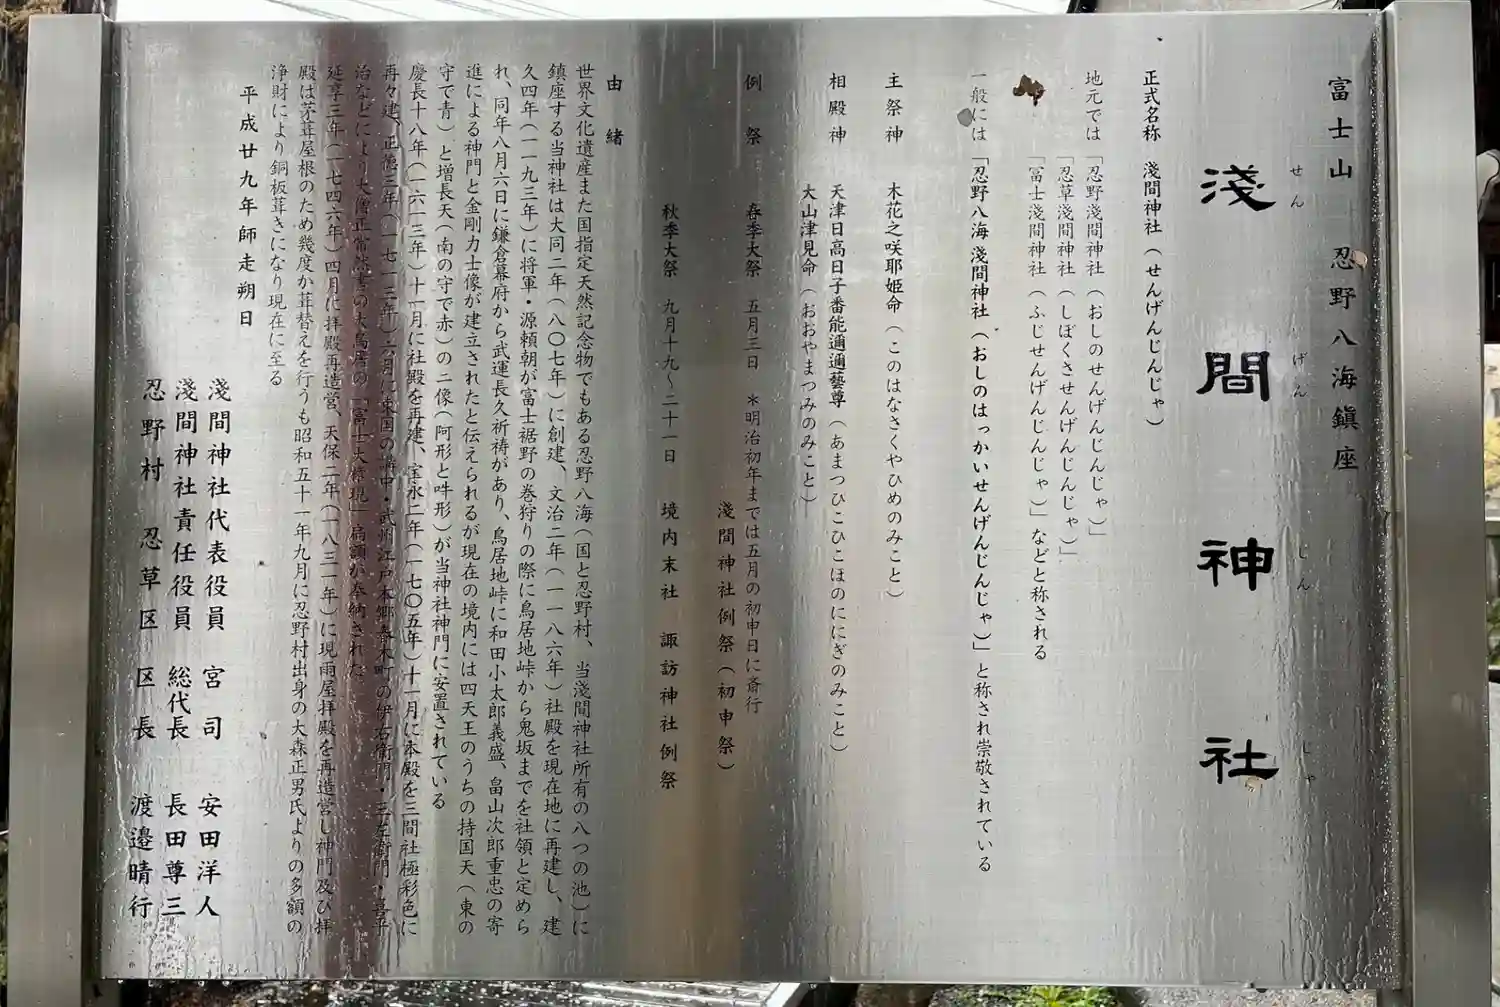 富士山 忍野八海鎮座
せん げん じん じゃ
淺間神社
正式名称 淺間神社(せんげんじんじゃ)
地元では「忍野淺間神社(おしのせんげんじんじゃ)」
「忍草淺間神社(しぼくさせんげんじんじゃ)」
「冨士淺間神社(ふじせんげんじんじゃ)」などと称される
一般には「忍野八海 淺間神社(おしのはっかいせんげんじんじゃ)」と称され崇敬されている
主祭神 木花之咲耶姫命(このはなさくやひめのみこと)
相殿神 天津日高日子番能邇邇藝尊(あまつひこひこほのににぎのみこと)
大山津見命(おおやまつみのみこと)
例祭 春季大祭 五月三日 *明治初年までは五月の初申日に斎行
淺間神社例祭(初申祭)
秋季大祭 九月十九〜二十一日 境内末社 諏訪神社例祭
由緒
世界文化遺産また国指定天然記念物でもある忍野八海(国と忍野村、当淺間神社所有の八つの池)に
鎮座する当神社は大同二年(八〇七年)に創建、文治二年(一一八六年)社殿を現在地に再建し、建
久四年(一一九三年)に将軍・源頼朝が富士裾野の巻狩りの際に鳥居地峠から鬼坂までを社領と定めら
れ、同年八月六日に鎌倉幕府から武運長久祈祷があり、鳥居地峠に和田小太郎義盛、畠山次郎重忠の寄
進による神門と金剛力士像が建立されたと伝えられるが現在の境内には四天王のうちの持国天(東の
守で青)と増長天(南の守で赤)の二像(阿形と吽形)が当神社神門に安置されている
慶長十八年(一六一三年)十一月に社殿を再建、宝永二年(一七〇五年)十一月に本殿を三間社極彩色に
再々建、正徳三年(一七一三年)六月に東国の講中・武州江戸本郷春木町の伊右衛門・三左衛門・喜平
治などにより大僧正常然書の大鳥居の「冨士大権現」扁額が奉納された
延享三年(一七四六年)四月に拝殿再造営、天保二年(一八三一年)に現雨屋拝殿を再造営し神門及び拝
殿は茅葺屋根のため幾度か葺替えを行うも昭和五十一年九月に忍野村出身の大森正男氏よりの多額の
浄財により銅板葺きになり現在に至る
平成廿九年師走朔日
淺間神社代表役員 宮司 安田洋人
淺間神社責任役員 総代長 長田尊三
忍野村 忍草区 区長 渡邉晴行